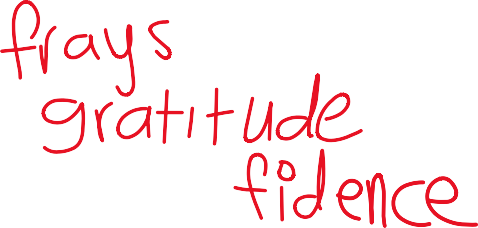 frays
gratitude
fidence